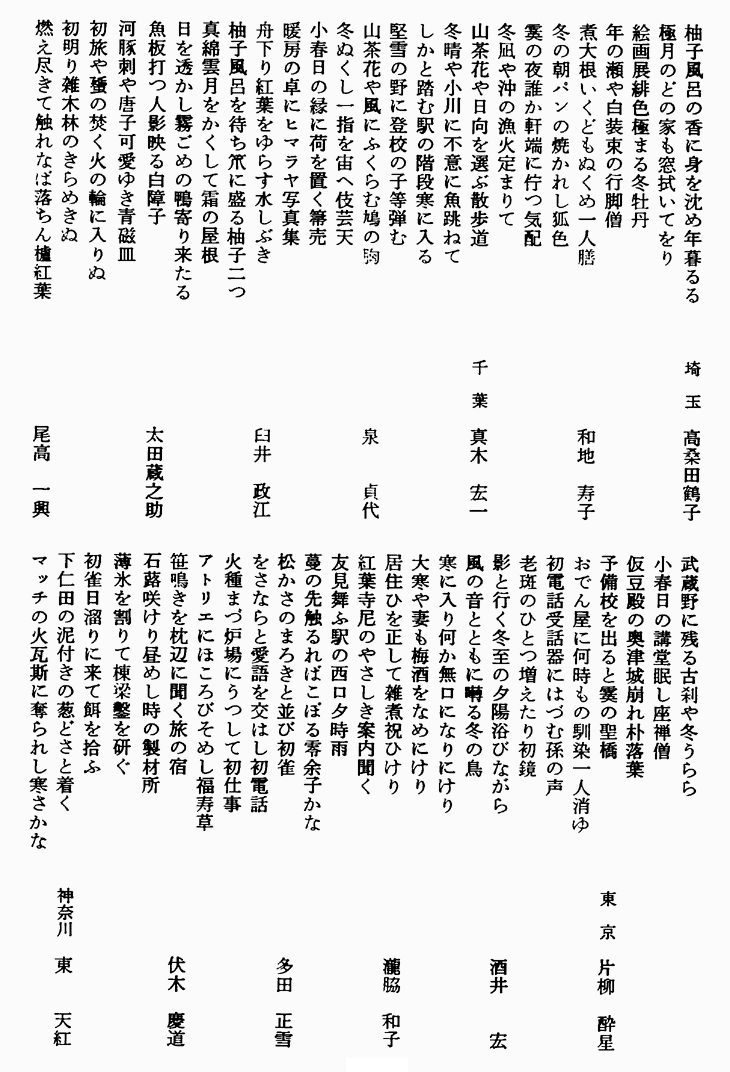 柚子風呂の香に身を沈め年暮るる　埼玉　高桑田鶴子
極月のどの家も窓拭いてをり
絵画展緋色極まる冬牡丹
年の瀬や白装束の行脚僧
煮大根いくどもぬくめ一人膳　和地　寿子
冬の朝パンの焼かれし狐色
霙の夜誰か軒端に佇つ気配
冬凪や沖の漁火定まりて
山茶花や日向を選ぶ散歩道　千葉　真木　宏一
冬晴や小川に不意に魚跳ねて
しかと踏む駅の階段寒に入る
堅雪の野に登校の子等弾む
山茶花や風にふくらむ鳩の胸　泉　貞代
冬ぬくし一指を宙へ伎芸天
小春日の縁に荷を置く箒売
暖房の卓にヒマラヤ写真集
舟下り紅葉をゆらす水しぶき　臼井　政江
柚子風呂を待ち笊に盛る柚子二つ
真綿雲月をかくして霜の屋根
日を透かし霧ごめの鴨寄り来たる
魚板打つ人影映る白障子　太田蔵之助
河豚刺や唐子可愛ゆき青磁皿
初旅や蜑の焚く火の輪に入りぬ
初明り雑木林のきらめきぬ
燃え尽きて触れなば落ちん櫨紅葉　尾高　一興
武蔵野に残る古刹や冬うらら
小春日の講堂眠し座禅僧
仮豆殿の奥津城崩れ朴落葉
予備校を出ると霙の聖橋　東京　片柳　酔星
おでん屋に何時もの馴染一人消ゆ
初電話受話器にはづむ孫の声
老斑のひとつ増えたり初鏡
影と行く冬至の夕陽浴びながら　酒井　宏
風の音とともに囀る冬の鳥
寒に入り何か無口になりにけり
大寒や妻も梅酒をなめにけり
居住ひを正して雑煮祝ひけり　瀧脇　和子
紅葉寺尼のやさしき案内聞く
友見舞ふ駅の西口夕時雨
蔓の先触るればこぼる零余子かな
松かさのまろきと並び初雀　多田　正雪
をさならと愛語を交はし初電話
火種まづ炉場にうつして初仕事
アトリエにほころびそめし福寿草
笹鳴きを枕辺に聞く旅の宿　伏木　慶道
石蕗咲けり昼めし時の製材所
薄氷を割りて棟梁鑿を研ぐ
初雀日溜りに来て餌を拾ふ
下仁田の泥付きの葱どさと着く　神奈川　東　天紅
マッチの火瓦斯に奪られし寒さかな